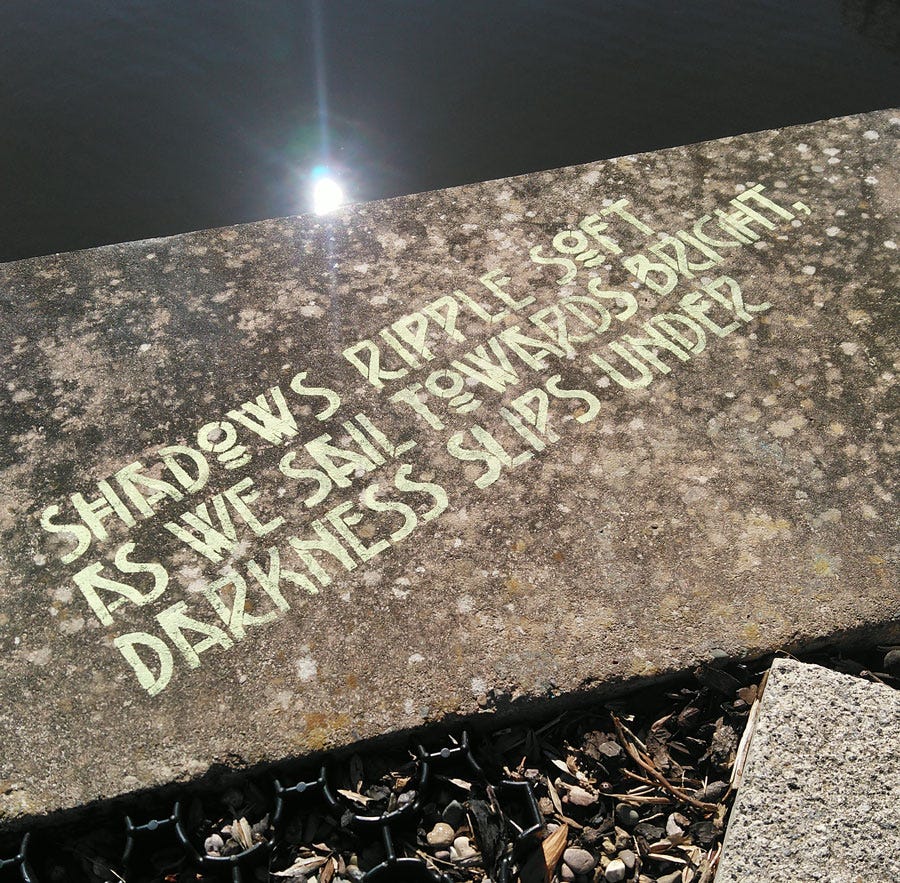 SHADOWS RIPPLE SOFT
AS WE SAIL TOWARDS BRIGHT,
DARKNESS SLIPS UNDER